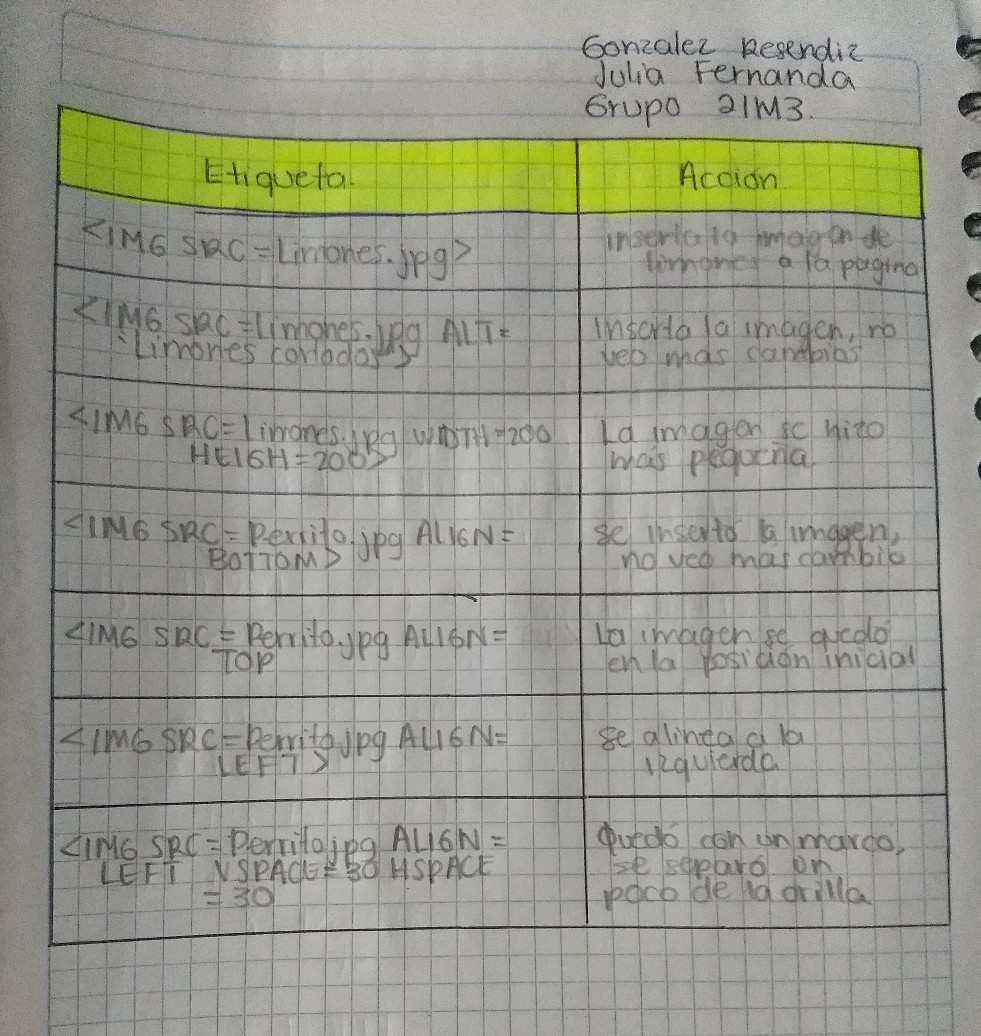 Gonzalez Resendiz
Julia Fernanda
Grupo 2IM3.
Etiqueta.
Acción
<IMG SRC=Limones.jpg>
inserta la imagen de
limones a la pagina
<IMG SRC=Limones.jpg ALT=
"Limones cortados">
Inserta la imagen, no
veo mas cambios
<IMG SRC=Limones.jpg WIDTH=200
HEIGH=200>
La imagen se hizo
mas pequeña.
<IMG SRC=Perrito.jpg ALIGN=
BOTTOM>
se insertó la imagen,
no veo mas cambio
<IMG SRC=Perrito.jpg ALIGN=
TOP
La imagen se quedó
en la posición inicial
<IMG SRC=Perrito.jpg ALIGN=
LEFT>
se alinea a la
izquierda
<IMG SRC=Perrito.jpg ALIGN=
LEFT VSPACE=30 HSPACE
=30
Quedó con un marco,
se separó un
poco de la orilla